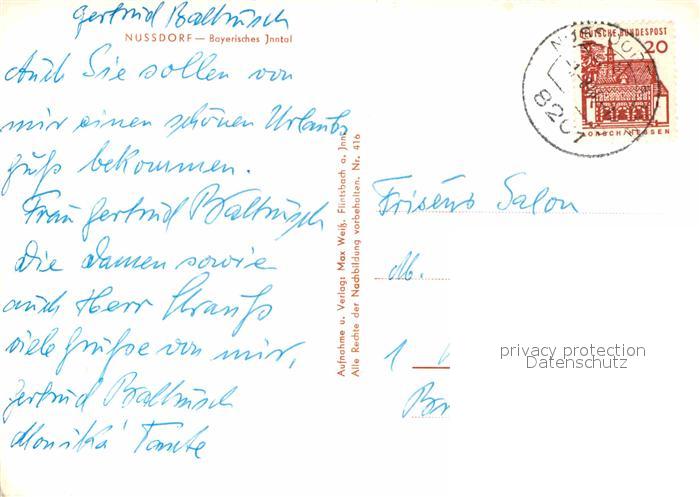 Gertrud Baltrusch
NUSSDORF — Bayerisches Jnntal
Auch Sie sollen von
mir einen schönen Urlaubs
gruß bekommen.
Frau Gertrud Baltrusch
Die Damen sowie
auch Herr Strauß
viele Grüße von mir,
Gertrud Baltrusch
Monika Tante
Aufnahme u. Verlag: Max Weiß, Flintsbach a. Jnn
Alle Rechte der Nachbildung vorbehalten. Nr. 416
DEUTSCHE BUNDESPOST
20
LORSCH/HESSEN
NUSSDORF
8201
Frisörs Salon
M.
1
privacy protection
Datenschutz